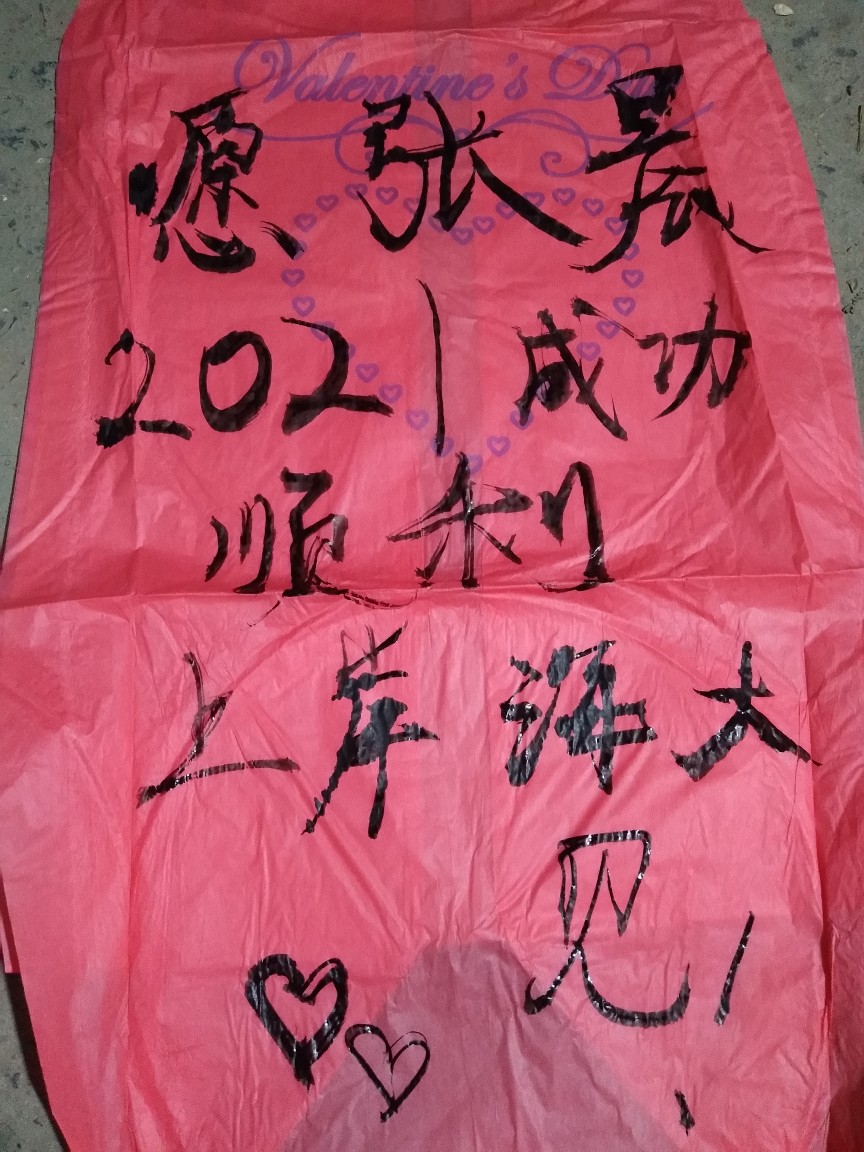 Valentine's Day
愿张晟
2021成功
顺利
上岸海大
见!